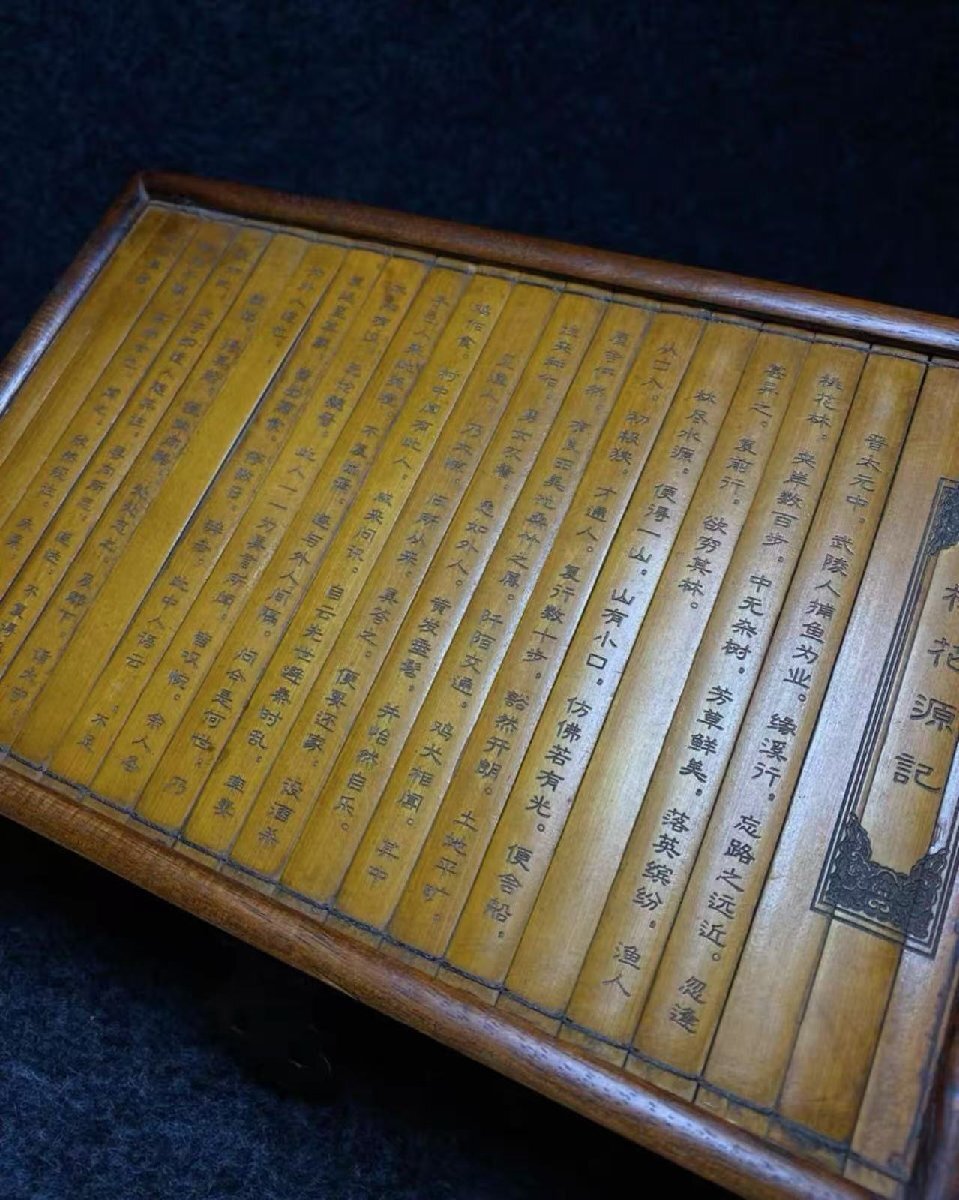 桃花源記
晋太元中。武陵人捕鱼为业。缘溪行。忘路之远近。忽逢
桃花林。夹岸数百步。中无杂树。芳草鲜美。落英缤纷。渔人
甚异之。复前行。欲穷其林。
林尽水源。便得一山。山有小口。仿佛若有光。便舍船。
从口入。初极狭。才通人。复行数十步。豁然开朗。土地平旷。
屋舍俨然。有良田美池桑竹之属。阡陌交通。鸡犬相闻。其中
往来种作。男女衣着。悉如外人。黄发垂髫。并怡然自乐。
见渔人。乃大惊。问所从来。具答之。便要还家。设酒杀
鸡作食。村中闻有此人。咸来问讯。自云先世避秦时乱。率妻
子邑人来此绝境。不复出焉。遂与外人间隔。问今是何世。乃
不知有汉。无论魏晋。此人一一为具言所闻。皆叹惋。余人各
复延至其家。皆出酒食。停数日。辞去。此中人语云。不足
为外人道也。
既出。得其船。便扶向路。处处志之。及郡下。诣太守
说如此。太守即遣人随其往。寻向所志。遂迷。不复得
闻之。欣然规往。未果